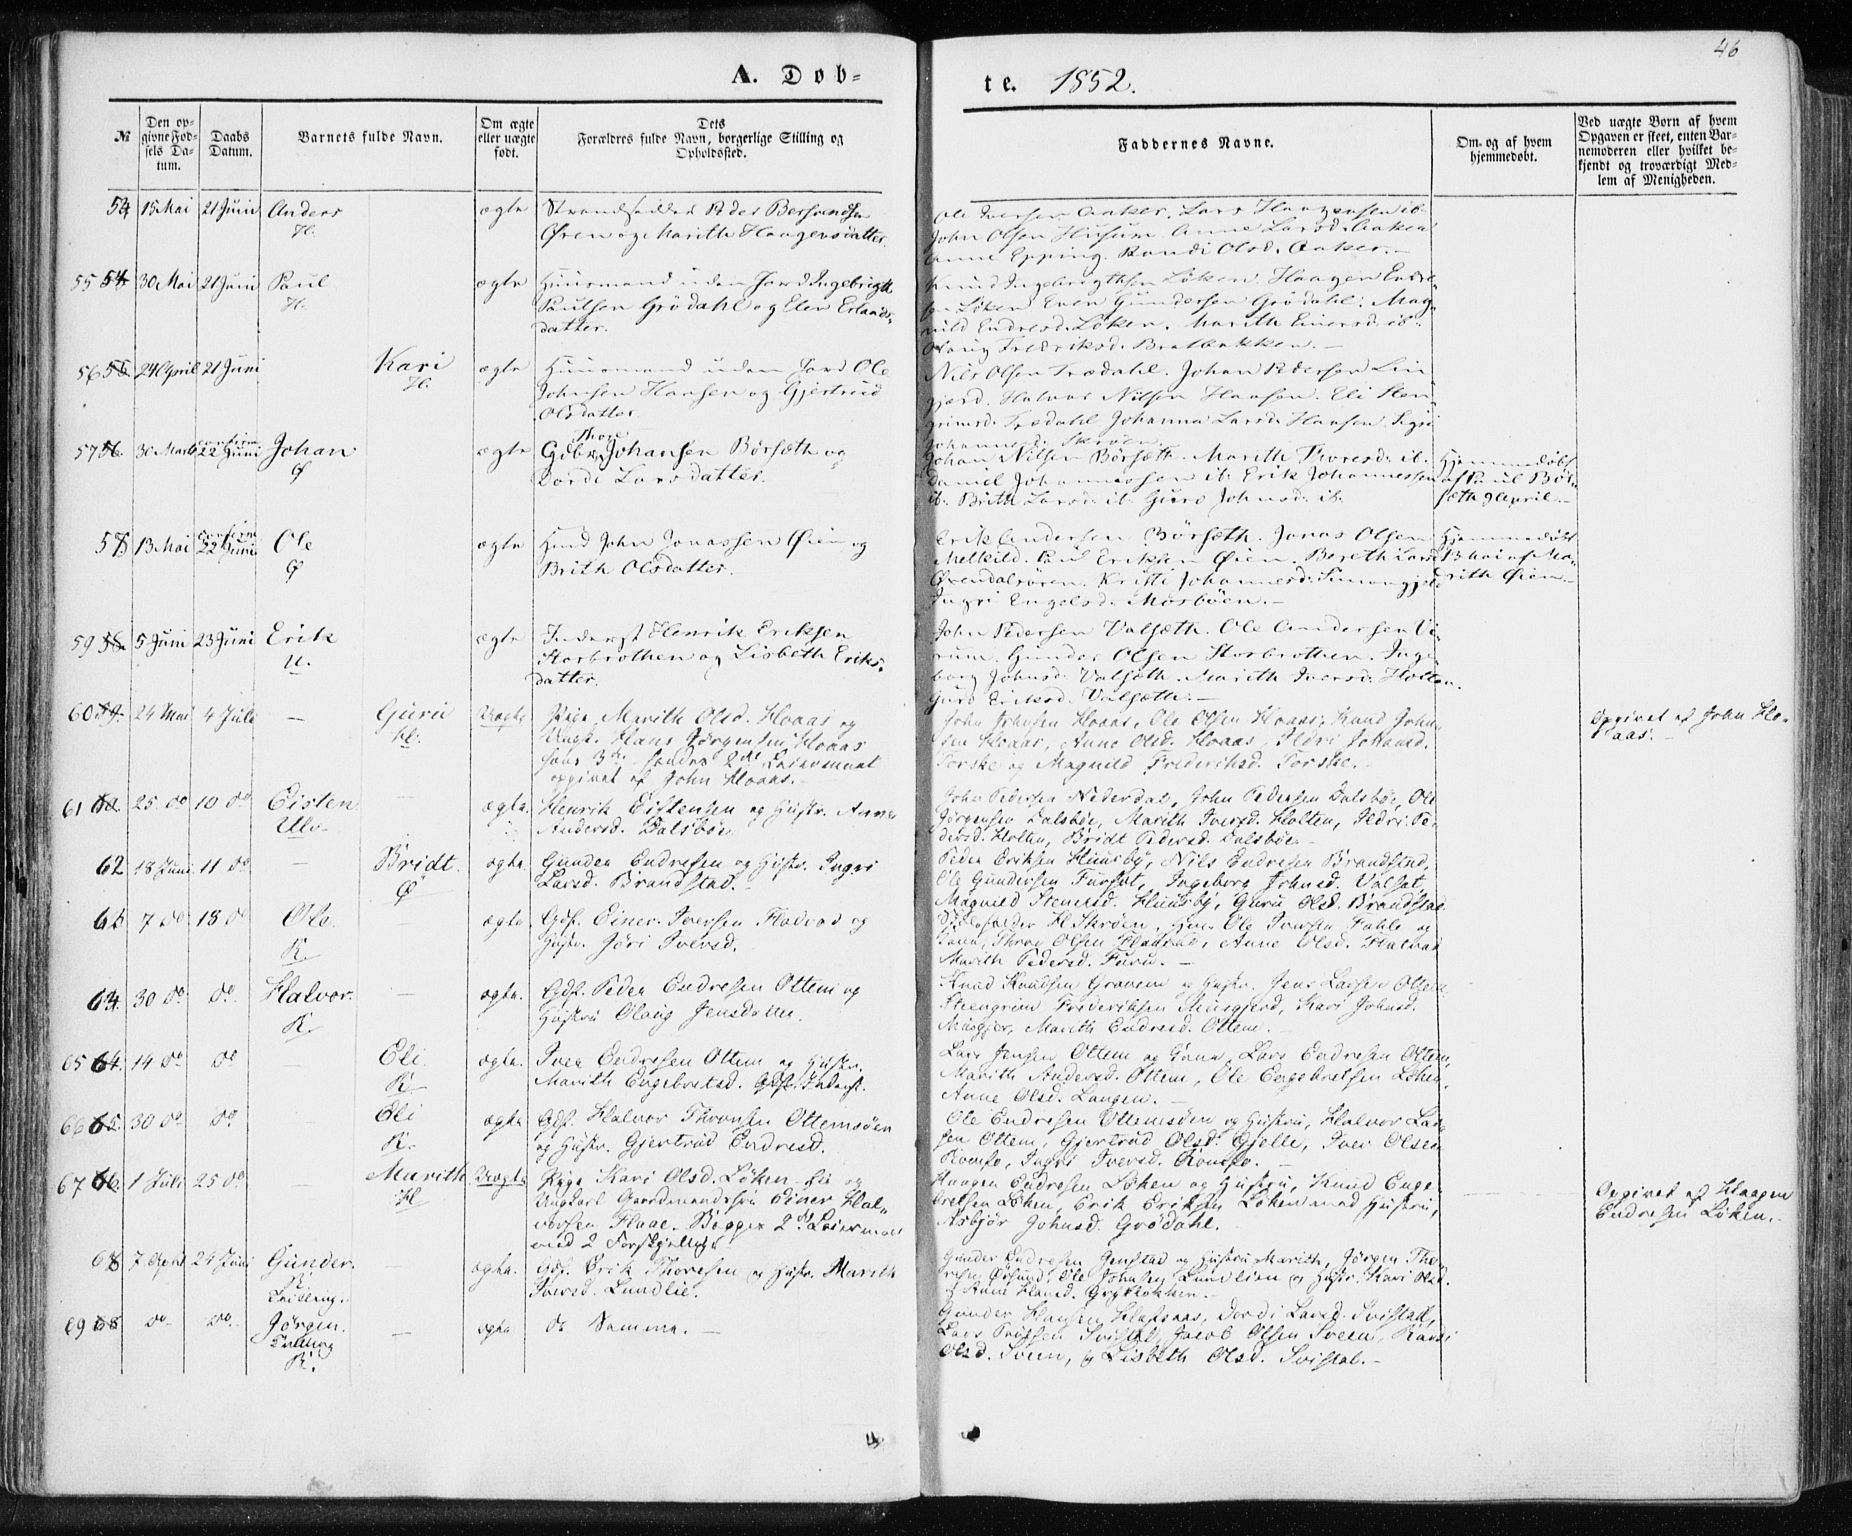 46
A. Døb-
te. 1852.
№
Den op-
givne Fød-
sels Da-
tum.
Daabs
Datum.
Barnets fulde Navn.
Om ægte
eller uægte
født.
Dets
Forældres fulde Navn, borgerlige Stilling og
Opholdssted.
Faddernes Navne.
Om- og af hvem
hjemmedøbt.
Ved uægte Børn af hvem
Opgaven er skeet, enten Bar-
nemoderen eller hvilket be-
kjendt og troværdigt Med-
lem af Menigheden.
54 15 Mai 21 Juni Anders ægte Strandsidder Peder
H. Ören og Marith Haagensdatter.
Ole Iversen Aaker. Lars Haagensen ib.
John Olsen Husum. Anne Larsd. Aaker
Anne Epping. Randi Olsd. Aaker.
55 54 30 Mai 21 Juni Paul ægte Huusmand uden Jord Ingebrigt
H. Paulsen Grödahl og Elen Erlands-
datter.
Knud Ingebrigtsen Löken. Haagen Endre-
sen Löken Even Gundersen Grödahl. Mag-
nild Endresd. Löken. Marith Eversd. ib.
Olaug Fredriksd. Bratbakken.
56 55 24 April 21 Juni Kari ægte Huusmand uden Jord Ole
H. Johnsen Hansen og Gjertrud
Olsdatter
Nils Olsen Trædahl. Johan Pedersen Lin-
gjerd. Halvor Nilsen Hansen. Eli Sten-
grimsd. Trædahl Johanna Larsd. Hansen. Sigri
Johannesd. Skröen
57 56 30 Marts confirm 22 Juni Johan ægte Gdbr. Thore Johansen Börsæth og
Ø Dordi Larsdatter.
Johan Nilsen Börsæth. Marith Thoresd. ib.
Daniel Johannessen ib: Erik Johannessen
ib. Brith Larsd. ib. Guro Johnsd. ib.
Hjemmedöbt
af Paul Bör-
sæth 9 April.
58 13 Mai confirm 22 Juni Ole ægte Husd John Jonassen Öien og
Ø Brith Olsdatter.
Erik Andersen Börsæth. Jonas Olsen
Melkild. Paul Eriksen Öien. Bereth Larsd
Övendalsören. Kristi Johannesd.
Ingri Engelsd. Mosböen.
Hjemmedöbt
13 Mai af Ma-
rith Öien
59 58. 5 Juni 23 Juni Erik ægte Inderst Henrik Eriksen
U. Storbrothen og Lisbeth Eriks-
datter.
John Pedersen Valsæth. Ole Andersen Vi-
rum. Gunder Olsen Storbrothen. Inge-
borg Johnsd. Valsæth. Marith Iversd. Holten.
Guro Eriksd. Valsæth.
60 59. 24 Mai 4 Juli — Guru Uægte Pige Marith Olsd. Hoaas og
H. Ungk. Hans Jörgensen Hoaas
hans 3die hendes 2det Leiermaal
opgivet af John Hoaas.
John Johnsen Hoaas, Ole Olsen Hoaas, Knud John-
sen Hoaas, Anne Olsd. Hoaas, Ildri Johansd.
Torske og Magnild Frederiksd. Torske.
Opgivet af John Ho-
aas.
61 60. 25 do 10 do Eisten — ægte. Henrik Eistensen og Hustr. Anne
Ulv. Andersd. Dalsböe.
John Pedersen Nederdal, John Pedersen Dalsböe, Ole
Jörgensen Dalsböe, Marith Iversd. Holten, Ildri Pe-
dersd. Holten, Bridt Pedersd. Dalsböe.
62 18 Juni 11 do — Bridt. ægte. Gunder Endresen og Hustr. Ingri
Ø Larsd. Brandstad.
Peder Eriksen Huusby, Nils Endresen Brandstad,
Ole Gundersen Furset, Ingeborg Johnsd. Valset,
Magnild Stenersd. Huusby, Guru Olsd. Brandstad
7 do 18 do Ole. — ægte. Gdf. Einer Iversen Fladvad og
R. Hustr. Jöri Iversd.
H. Skröen, Ole Iversen Fahle og
Kone, Thore Olsen Fladvad, Anne Olsd. Fladvad
Marith Pedersd. Furu.
64. 30 do do. Halvor. — ægte. Gdf. Peder Endresen Ottem og
R. Hustru Olaug Jensdatter.
Knud Knudsen Gravem og Hustr. Jens Larsen Ottem
Steengrim Frederiksen Musgjerd, Kari Johnsd.
Musgjer, Marith Endresd. Ottem.
65 64. 14 do do — Eli ægte. Iver Endresen Ottem og Hustr.
R Marith Engebretsd. Gdf. Inderst.
Lars Jensen Ottem og Kone, Lars Endresen Ottem,
Marith Andersd. Ottem, Ole Engebretsen Löken,
Anne Olsd. Langen.
66 65. 30 do do. Eli ægte Gdf. Halvor Thronsen Ottemsöen
R. og Hustr. Gjertrud Endresd.
Ole Endresen Ottemsöen og Hustru, Halvor Lar-
sen Ottem, Gjertrud Olsd. Gjelle, Iver Olsen
Romfo, Ingri Iversd. Romfo.
67 66. 1 Juli 25 do — Marith Uægte Pige Kari Olsd. Löken Eie og
H Ungkarl Gaardmandssön Einer Hal-
vorsen Flaae. Begges 2det Leiermaal
med 2 Forskjellige.
Haagen Endresen Löken og Hustru, Knud Enge-
bretsen Löken, Erik Eriksen Löken med Hustru,
Asbjör Johnsd. Grödahl.
Opgivet af Haagen
Endresen Löken.
68 7 Sept 24 Juni Gunder. — ægte. Gdf. Erik Thoresen og Hustr. Marith
R. Iversd. Lundlie.
Tvilling.
Gunder Endresen Gjenstad og Hustru Marith, Jörgen Tho-
resen Ösund, Ole Johnsen Lundlien og Hustr. Kari Olsd.
og Anne Hansd. Gryttbakken.
69 68 do do. Jörgen. — ægte do Samme.
Tvilling
R.
Gunder Hansen Hafsaas, Dordi Larsd. Svisdal,
Lars Svisdal, Jacob Olsen Sveen, Randi
Olsd. Sveen, og Lisbeth Olsd. Svisdal.